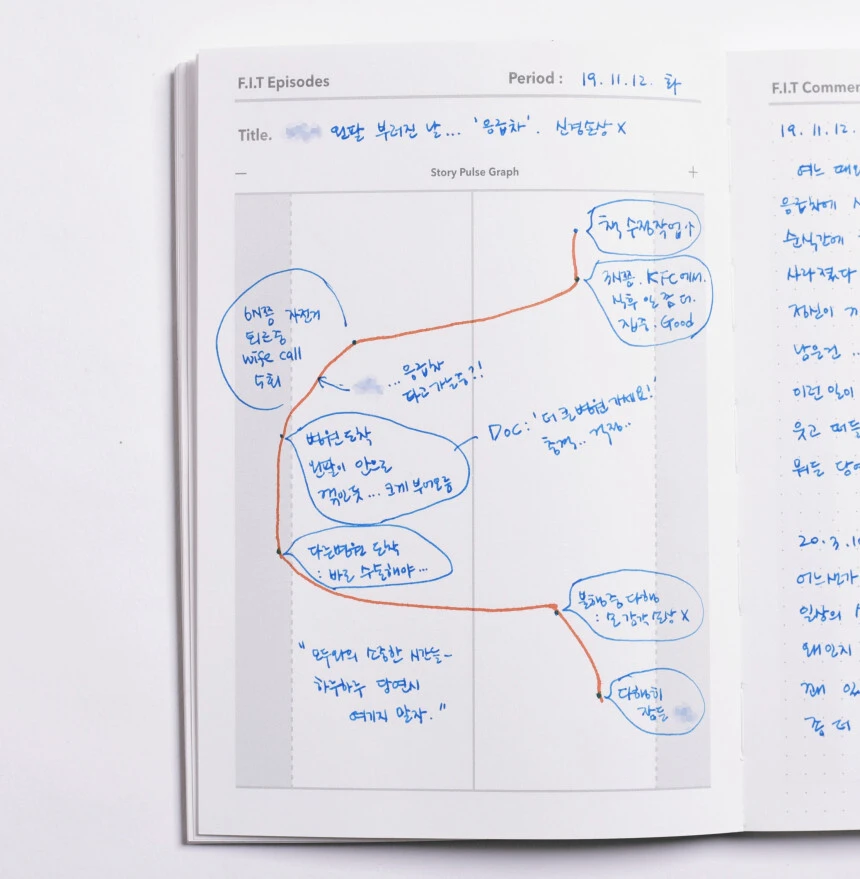 F.I.T Episodes
Period : 19. 11. 12. 화
Title. 왼팔 부러진 날... '응급차'. 신경손상 X
− Story Pulse Graph +
책 수정작업 中
3시쯤. KFC에서.
식후 일 좀 더.
집중 : Good
6시쯤 자전거
퇴근중
wife call
수회
... 응급차
타고 가는중?!
병원 도착
왼팔이 안으로
꺾인듯... 크게 부어오름
Doc : '더 큰 병원 가세요!'
충격.. 걱정..
다른병원 도착
: 바로 수술해야...
불행중 다행
: 손 감각 손상 X
다행히
잠듦
" 모두와의 소중한 시간들~
하루하루 당연시
여기지 말자. "
F.I.T Commen
19. 11. 12.
여느 때와
응급차에
순식간에
사라졌다
정신이
남은건 ...
이런 일이
웃고 떠들
뭐든 당연
20. 3. 10
어느샌가
일상의
왜인지
꽤
좀 더